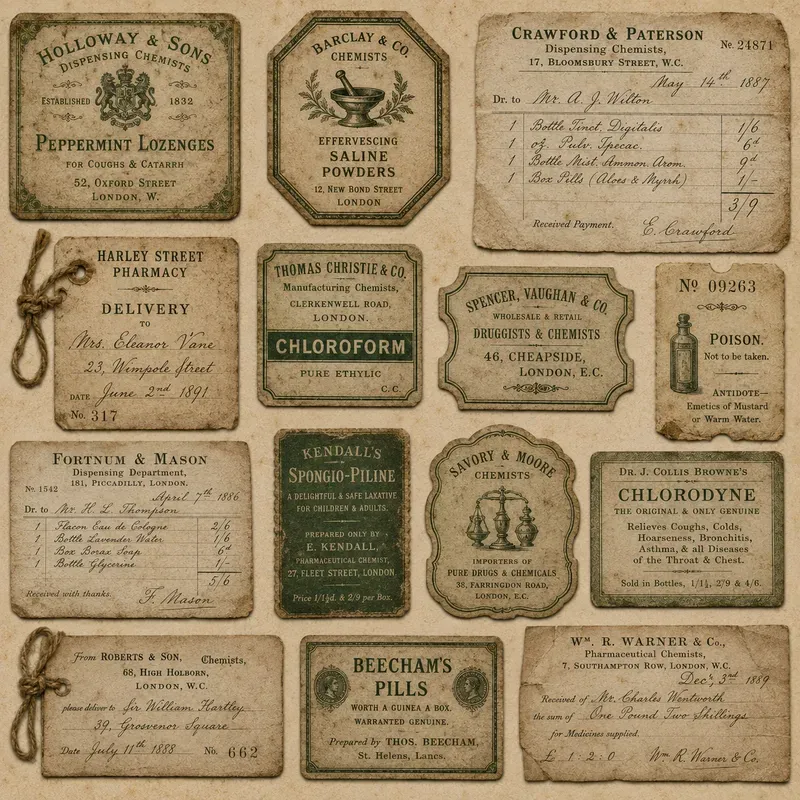 HOLLOWAY & SONS
DISPENSING CHEMISTS
ESTABLISHED 1832
PEPPERMINT LOZENGES
FOR COUGHS & CATARRH
52, OXFORD STREET
LONDON, W.
BARCLAY & CO.
CHEMISTS
EFFERVESCING
SALINE
POWDERS
12, NEW BOND STREET
LONDON
CRAWFORD & PATERSON
Dispensing Chemists,
17, BLOOMSBURY STREET, W.C.
No. 24871
May 14th 1887
Dr. to Mr. A. J. Wilton
1 Bottle Tinct. Digitalis 1/6
1 oz. Pulv. Ipecac. 6d
1 Bottle Mist. Ammon. Arom. 9d
1 Box Pills (Aloes & Myrrh) 1/-
3/9
Received Payment. E. Crawford
HARLEY STREET
PHARMACY
DELIVERY
TO
Mrs. Eleanor Vane
23, Wimpole Street
DATE June 2nd 1891
No. 317
THOMAS CHRISTIE & CO.
Manufacturing Chemists,
CLERKENWELL ROAD,
LONDON.
CHLOROFORM
PURE ETHYLIC
C.C.
SPENCER, VAUGHAN & CO.
WHOLESALE & RETAIL
DRUGGISTS & CHEMISTS
46, CHEAPSIDE,
LONDON, E.C.
No 09263
POISON.
Not to be taken.
ANTIDOTE—
Emetics of Mustard
or Warm Water.
FORTNUM & MASON
Dispensing Department,
181, PICCADILLY, LONDON.
No. 1542
April 7th 1886
Dr. to Mr. H. L. Thompson
1 Flacon Eau de Cologne 2/6
1 Bottle Lavender Water 1/6
1 Box Borax Soap 6d
1 Bottle Glycerine 1/-
5/6
Received with thanks. F. Mason
KENDALL'S
SPONGIO-PILINE
A DELIGHTFUL & SAFE LAXATIVE
FOR CHILDREN & ADULTS.
PREPARED ONLY BY
E. KENDALL,
PHARMACEUTICAL CHEMIST,
27, FLEET STREET, LONDON
Price 1/1½d. & 2/9 per Box.
SAVORY & MOORE
CHEMISTS
IMPORTERS OF
PURE DRUGS & CHEMICALS
38, FARRINGDON ROAD,
LONDON, E.C.
DR. J. COLLIS BROWNE'S
CHLORODYNE
THE ORIGINAL & ONLY GENUINE
Relieves Coughs, Colds,
Hoarseness, Bronchitis,
Asthma, & all Diseases
of the Throat & Chest.
Sold in Bottles, 1/1½, 2/9 & 4/6.
From ROBERTS & SON, Chemists,
68, HIGH HOLBORN,
LONDON, W.C.
please deliver to Sir William Hartley
39, Grosvenor Square
Date July 11th 1888 No. 662
BEECHAM'S
PILLS
WORTH A GUINEA A BOX.
WARRANTED GENUINE.
Prepared by THOS. BEECHAM,
St. Helens, Lancs.
WM. R. WARNER & Co.,
Pharmaceutical Chemists,
7, SOUTHAMPTON ROW, LONDON, W.C.
Decr. 3rd 1889
Received of Mr. Charles Wentworth
the sum of One Pound Two Shillings
for Medicines supplied.
£ 1 : 2 : 0 Wm R. Warner & Co.